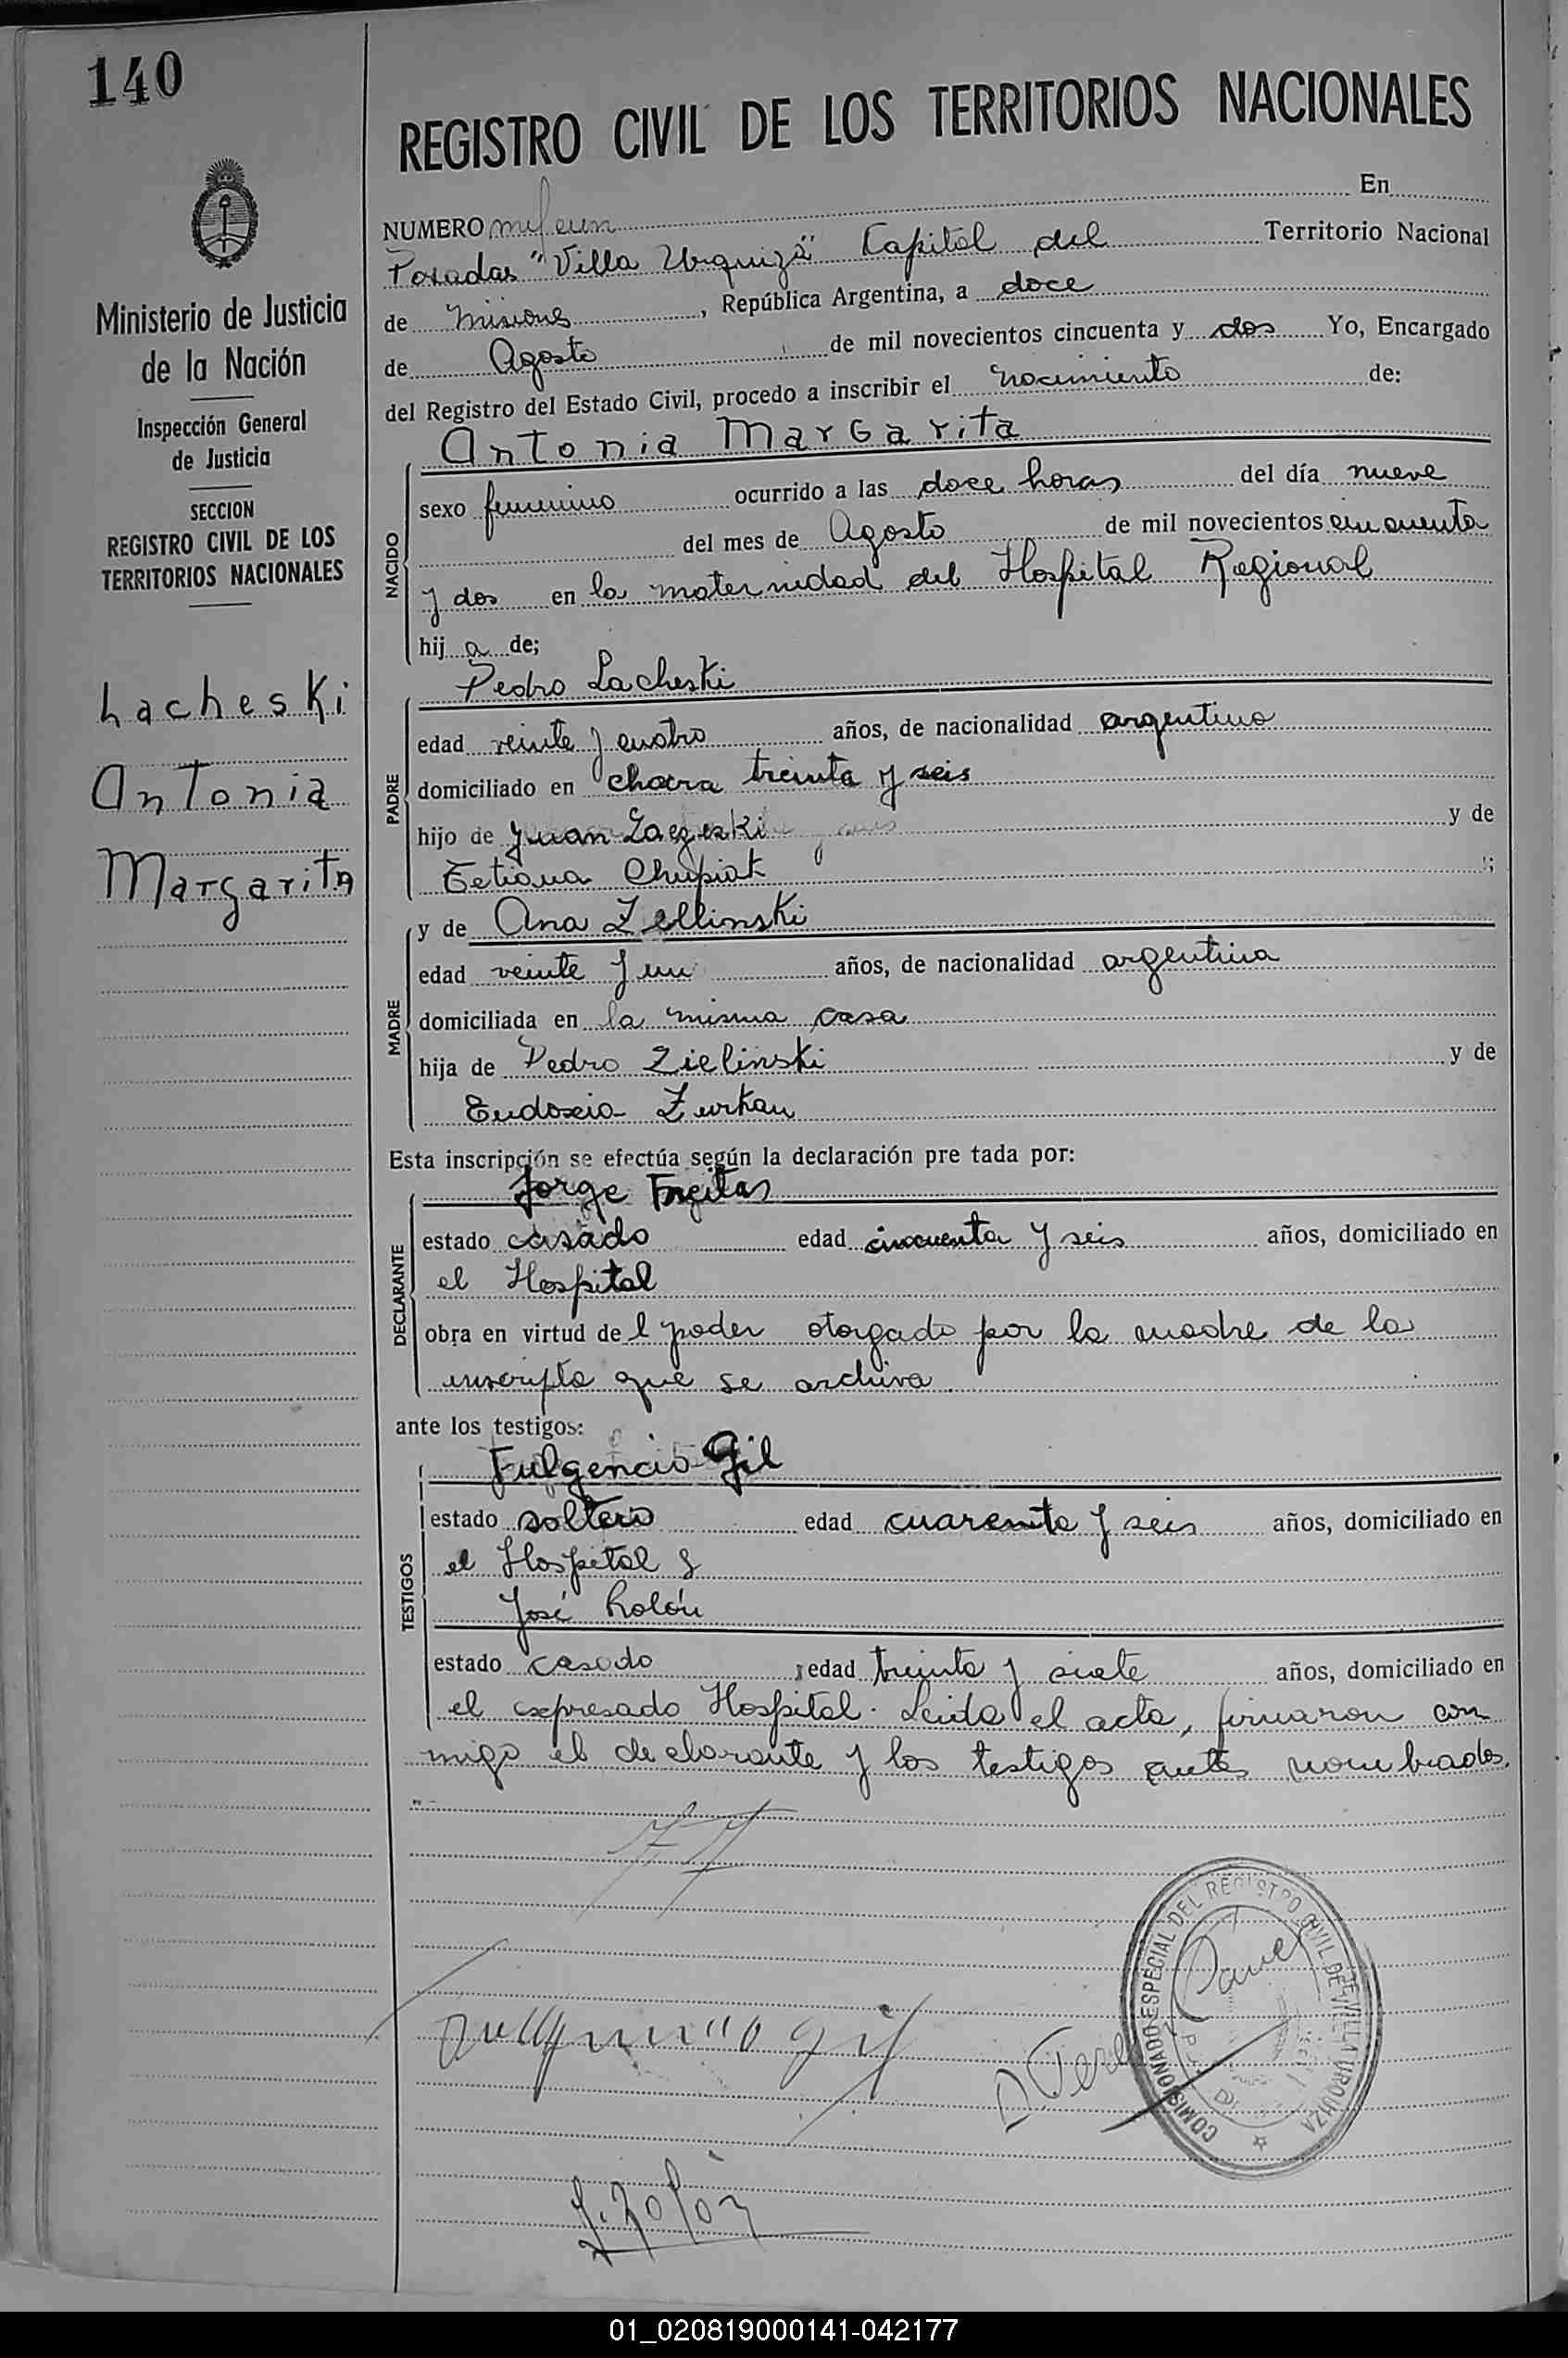 140
REGISTRO CIVIL DE LOS TERRITORIOS NACIONALES
Ministerio de Justicia
de la Nación
Inspección General
de Justicia
SECCION
REGISTRO CIVIL DE LOS
TERRITORIOS NACIONALES
Lacheski
Antonia
Margarita
NUMERO mil un En
Posadas "Villa Urquiza" Capital del Territorio Nacional
de Misiones, República Argentina, a doce
de Agosto de mil novecientos cincuenta y dos Yo, Encargado
del Registro del Estado Civil, procedo a inscribir el nacimiento de:
Antonia Margarita
NACIDO
sexo femenino ocurrido a las doce horas del día nueve
del mes de Agosto de mil novecientos cincuenta
y dos en la maternidad del Hospital Regional
hij a de;
Pedro Lacheski
PADRE
edad veinte y cuatro años, de nacionalidad argentino
domiciliado en chacra treinta y seis
hijo de Juan Laczeski y de
Tetiana Chupiak ;
y de Ana Zellinski
MADRE
edad veinte y un años, de nacionalidad argentina
domiciliada en la misma casa
hija de Pedro Zielinski y de
Eudoxia Zurkan
Esta inscripción se efectúa según la declaración pre tada por:
Jorge Freitas
DECLARANTE
estado casado edad cincuenta y seis años, domiciliado en
el Hospital
obra en virtud de l poder otorgado por la madre de la
inscripta que se archiva
ante los testigos:
Fulgencio Gil
TESTIGOS
estado soltero edad cuarenta y seis años, domiciliado en
el Hospital y
José Rolón
estado casado edad treinta y siete años, domiciliado en
el expresado Hospital. Leida el acta, firmaron con
migo el declarante y los testigos antes nombrados.
COMISIONADO ESPECIAL DEL REGISTRO CIVIL DE VILLA URQUIZA
Fulgencio Gil
J. Rolón
01_020819000141-042177